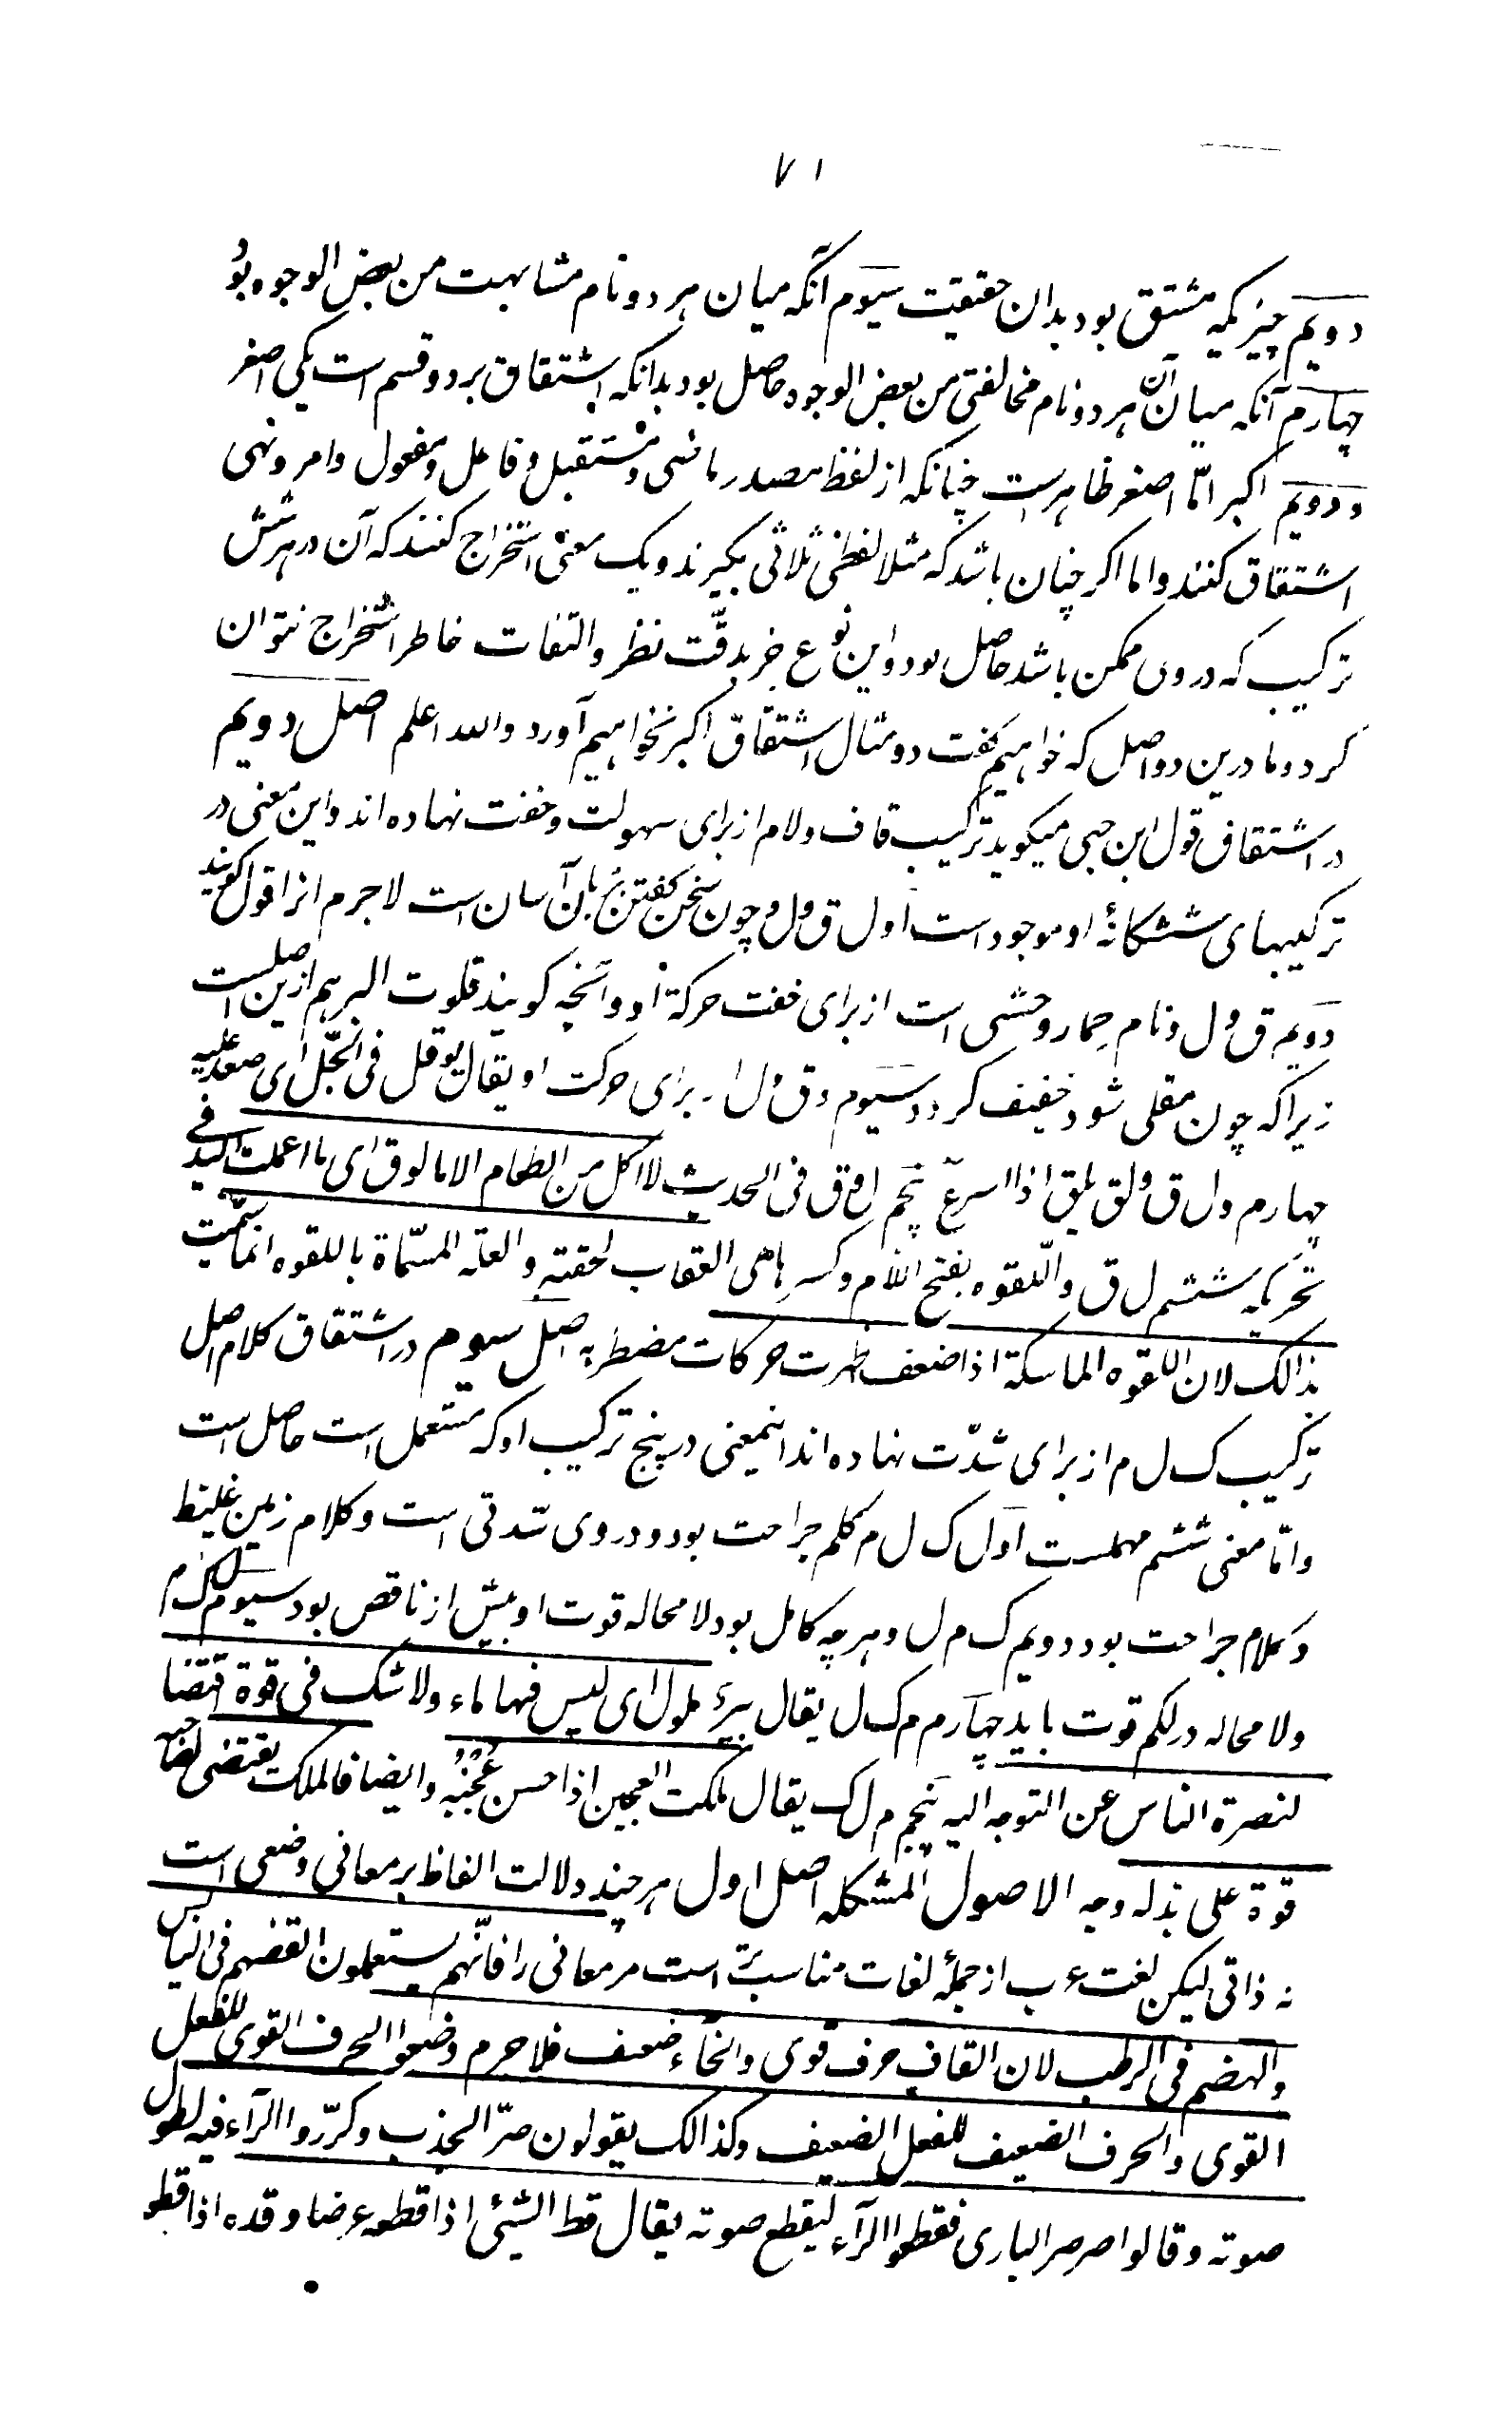 ۷۱
دویم چیزیکه مشتق بود بدان حقیقت سیوم آنکه میان هر دو نام مشابهت من بعض الوجوه بود
چهارم آنکه میان آن هر دو نام مخالفتی من بعض الوجوه حاصل بود بدانکه اشتقاق بر دو قسم است یکی اصغر
و دویم اکبر امّا اصغر ظاهرست چنانکه از لفظ مصدر ماضی و مستقبل و فاعل و مفعول و امر و نهی
اشتقاق کنند و اما اکبر چنان باشد که مثلا لفظی ثلاثی بگیرند و یک معنی استخراج کنند که آن در هر شش
ترکیب که در وی ممکن باشد حاصل بود و این نوع جز بدقّت نظر و التفات خاطر استخراج نتوان
کرد و ما درین دو اصل که خواهیم گفت دو مثال اشتقاق اکبر نخواهیم آورد والله اعلم اصل دویم
در اشتقاق قول ابن جنی میگوید ترکیب قاف و لام از برای سهولت و خفت نهاده اند و این معنی در
ترکیبهای ششگانهٔ او موجود است اول ق ول و چون سخن گفتن بزبان آسان است لاجرم انرا قول گویند
دویم ق ول و نام حمار وحشی است از برای خفت حرکة او و آنچه گویند قلوت البر هم ازین اصلست
زیرا که چون مقلی شود خفیف گردد سیوم وق ل از برای حرکت او یقال یوقل فی الجبل ای صعد علیه
چهارم ول ق ولق یلق اذا اسرع پنجم ل وق فی الحدیث لا اکل من الطعام الا مالوق ای ما اعملت الید فی
تحریکه ششم ل ق و اللقوه بفتح اللام و کسرها هی العقاب لخفته و العلّه المسمّاة باللقوه انما سمّیت
بذالک لان اللقوه الماسکة اذا ضعف ظهرت حرکات مضطربه اصل سیوم در اشتقاق کلام اصل
ترکیب ک ل م از برای شدّت نهاده اند اینمعنی در پنج ترکیب او که مستعمل است حاصل است
و امّا معنی ششم مهملست اول ک ل م کلم جراحت بود و در وی شدتی است و کلام زمین غلیظ
و کلام جراحت بود دویم ک م ل و هرچه کامل بود لامحاله قوت او بیش از ناقص بود سیوم ل ک م
ولا محاله در لکم قوت باید چهارم م ک ل یقال بیرٌ مکول ای لیس فیها ماء ولاشک فی قوة
لنصرة الناس عن التوجه الیه پنجم م ل ک یقال ملکت العجین اذا حسن عجنه و ایضا فالملک یقتضی لصاحبه
قوة علی بذله وجه الاصول المشکله اصل اول هرچند دلالت الفاظ بر معانی وضعی است
نه ذاتی لیکن لغت عرب از جملهٔ لغات مناسب‌تر است مر معانی را فانّهم یستعملون القضم فی الیابس
و الهضم فی الرطب لان القاف حرف قوی و الخاء ضعیف فلاجرم وضعوا الحرف القوی للفعل
القوی و الحرف الضعیف للفعل الضعیف و کذالک یقولون صرّ الجندب و کرّروا الرآء فیه لطول
صوته و قالوا صرصر البازی فقطعوا الرآء لیقطع صوته یقال قط الشیئ اذا قطعه عرضا و قده اذا قطعه